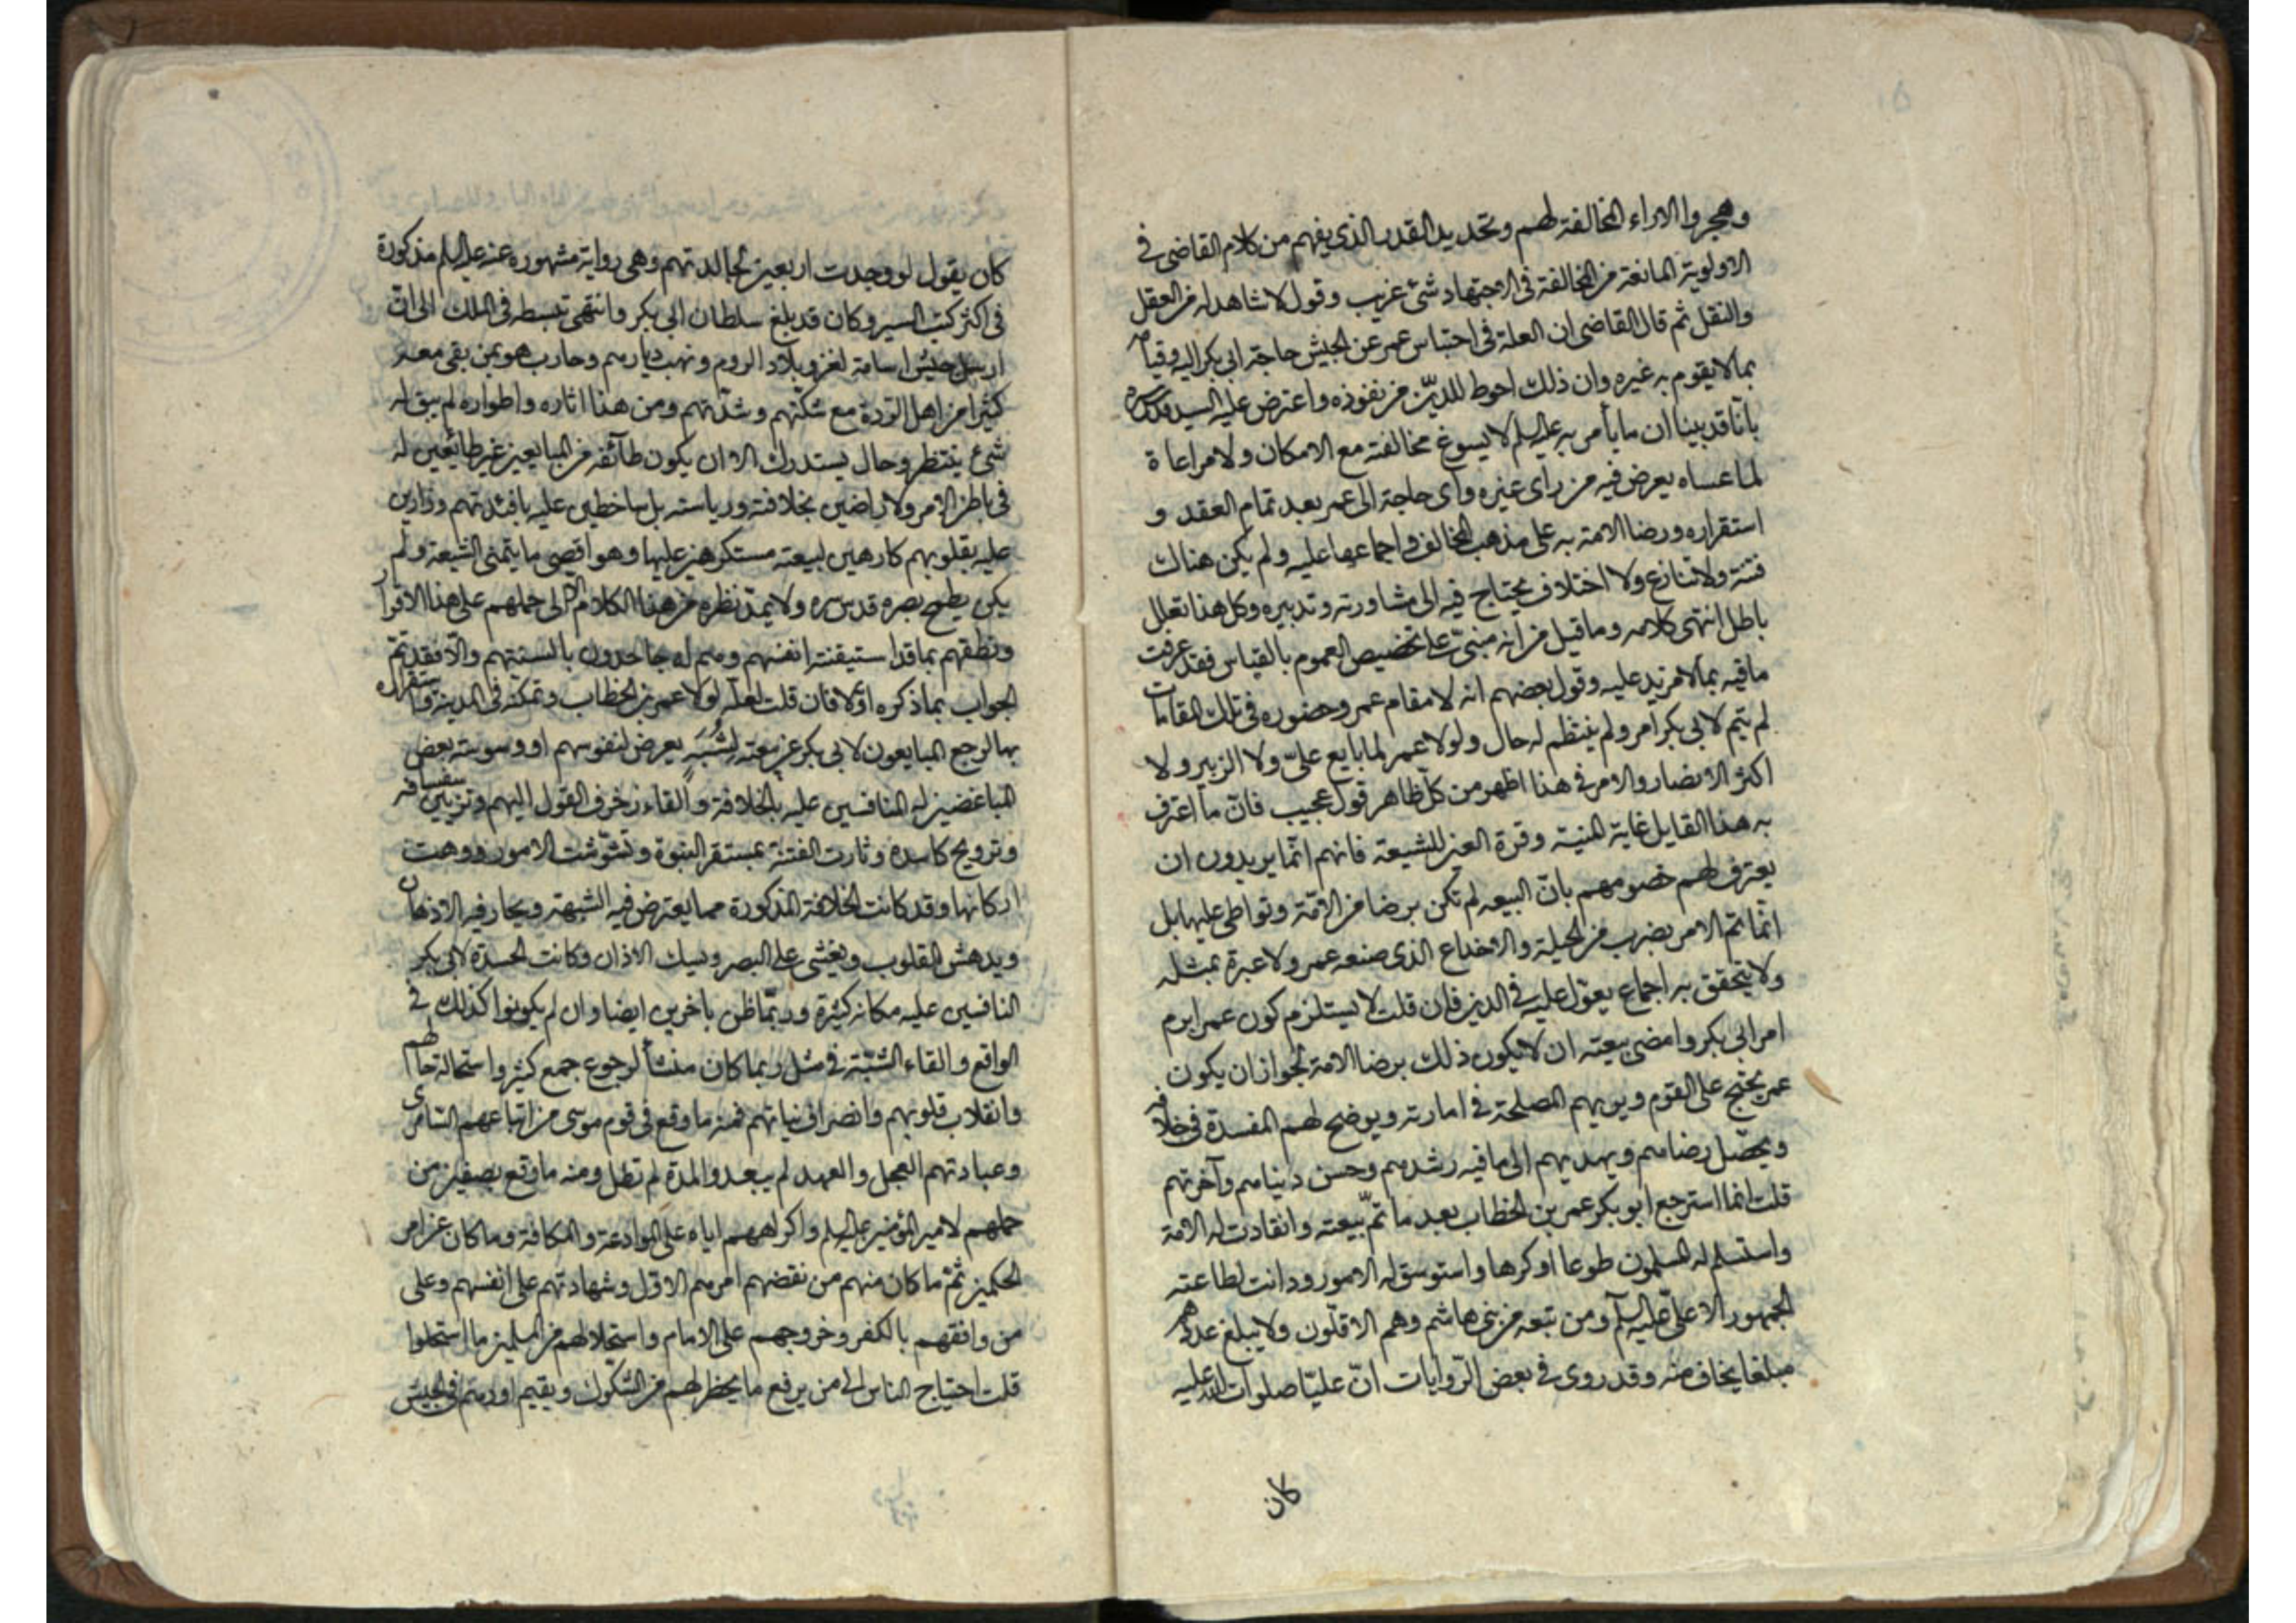 وهجروا الاراء المخالفة لهم وتحديد القدر الذى يفهم من كلام القاضى فى
الاولوية المانعة من المخالفة فى الاجتهاد شئ غريب وقول لا شاهد له من العقل
والنقل ثم قال القاضى ان العلة فى احتباس عمر عن الجيش حاجة ابى بكر اليه وقيامه
بما لا يقوم به غيره وان ذلك احوط للدين من نفوذه واعترض عليه السيد قدس سره
بانا قد بينا ان ما يأمر به عليه السلم لا يسوغ مخالفته مع الامكان ولا مراعاة
لما عساه يعرض فيه من راى غيره واى حاجة الى عمر بعد تمام العقد و
استقراره ورضا الامة به على مذهب المخالف واجماعها عليه ولم يكن هناك
فتنة ولا تنازع ولا اختلاف يحتاج فيه الى مشاورته وتدبيره وكل هذا تعلل
باطل انتهى كلامه وما قيل من انه مبنى على تخصيص العموم بالقياس فقد عرفت
ما فيه بما لا مزيد عليه وقول بعضهم انه لا مقام عمر وحضوره فى تلك المقامات
لم يتم لابى بكر امر ولم ينتظم له حال ولولا عمر لما بايع علىّ ولا الزبير ولا
اكثر الانصار والامر فى هذا اظهر من كل ظاهر قول عجيب فانّ ما اعترف
به هذا القايل غاية المنية وقرة العين للشيعة فانهم انّما يريدون ان
يعترف لهم خصومهم بانّ البيعه لم تكن برضا من الامّة وتواطى عليها بل
انّما تم الامر بضرب من الحيلة والاخداع الذى صنعه عمر ولا عبرة بمثله
ولا يتحقق به اجماع يعوّل عليه فى الدين فان قلت لا يستلزم كون عمر ابرم
امر ابى بكر وامضى بيعته ان لا يكون ذلك برضا الامة لجواز ان يكون
عمر يحتج على القوم ويريهم المصلحة فى امارته ويوضح لهم المفسدة فى خلافه
ويحصّل رضاهم ويهديهم الى ما فيه رشدهم وحسن دنياهم وآخرتهم
قلت انما استرجع ابو بكر عمر بن الخطاب بعد ما تمّ بيعته وانقادت له الامة
واستسلم له المسلمون طوعا او كرها واستوسق له الامور ودانت لطاعته
الجمهور الا علىّ عليه السلم ومن تبعه من بنى هاشم وهم الاقلّون ولا يبلغ عددهم
مبلغا يخاف منه وقد روى فى بعض الرّوايات انّ عليّا صلوات الله عليه
كان
كان يقول لو وجدت اربعين لجالدتهم وهى رواية مشهوره عنه عليه السلم مذكورة
فى اكثر كتب السير وكان قد بلغ سلطان ابى بكر وانتهى تبسطه فى الملك الى انّ
ارسل جيش اسامة لغزو بلاد الروم ونهب ديارهم وحارب هو بمن بقى معه
كثيرا من اهل الردة مع شكّتهم وشدّتهم ومن هذا اثاره واطواره لم يبق له
شئ ينتظر وحال يستدرك الا ان يكون طائفة من المبايعين غير طائعين له
فى باطن الامر ولا راضين بخلافته ورياسته بل ساخطين عليه بافئدتهم وزارين
عليه بقلوبهم كارهين لبيعته مستكرهين عليها وهو اقصى ما يتمنى الشيعة ولم
يكن يطمح بصره قدس سره ولا يمدّ نظره من هذا الكلام الا الى حملهم على هذا الاقرار
ونطقهم بما قد استيقنته انفسهم وهم له جاحدون بالسنتهم والّا فقد تمّ
الجواب بما ذكره اوّلا فان قلت لعلّه لولا عمر بن الخطاب وتمكنه فى المدينة واستقراره
بها لرجع المبايعون لابى بكر عن بيعته لشُبَهٍ يعرض لنفوسهم او وسوسة بعض
المباغضين له المنافسين عليه بالخلافة والقاء زخرف القول اليهم وتزيين سفسافه
وترويج كاسده وثارت الفتنة بمستقر النبوة وتشوّشت الامور ووهت
اركانها وقد كانت الخلافة المذكورة مما يعترض فيه الشبهة ويحار فيه الاذهان
ويدهش القلوب ويغشى على البصر ويسك الاذان وكانت الحسدة لابى بكر
النافسين عليه مكانه كثيرة وربّما ظن باخرين ايضا وان لم يكونوا كذلك فى
الواقع والقاء الشبّهة فى مثل ربما كان منشأ لرجوع جمع كثير واستحالة حالهم
وانقلاب قلوبهم وانصراف نياتهم فمنه ما وقع فى قوم موسى من اتباعهم السّامرى
وعبادتهم العجل والعهد لم يبعد والمدة لم تطل ومنه ما وقع بصفين من
حملهم لامير المؤمنين عليه السلم واكراههم اياه على الموادعة والمكافة وما كان من امر
الحكمين ثمّ ما كان منهم من نقضهم امرهم الاوّل وشهادتهم على انفسهم وعلى
من وافقهم بالكفر وخروجهم على الامام واستحلالهم من المسلمين ما استحلوا
قلت احتياج الناس الى من يرفع ما يخطر لهم من الشكوك ويقيم اودهم فى الجيش